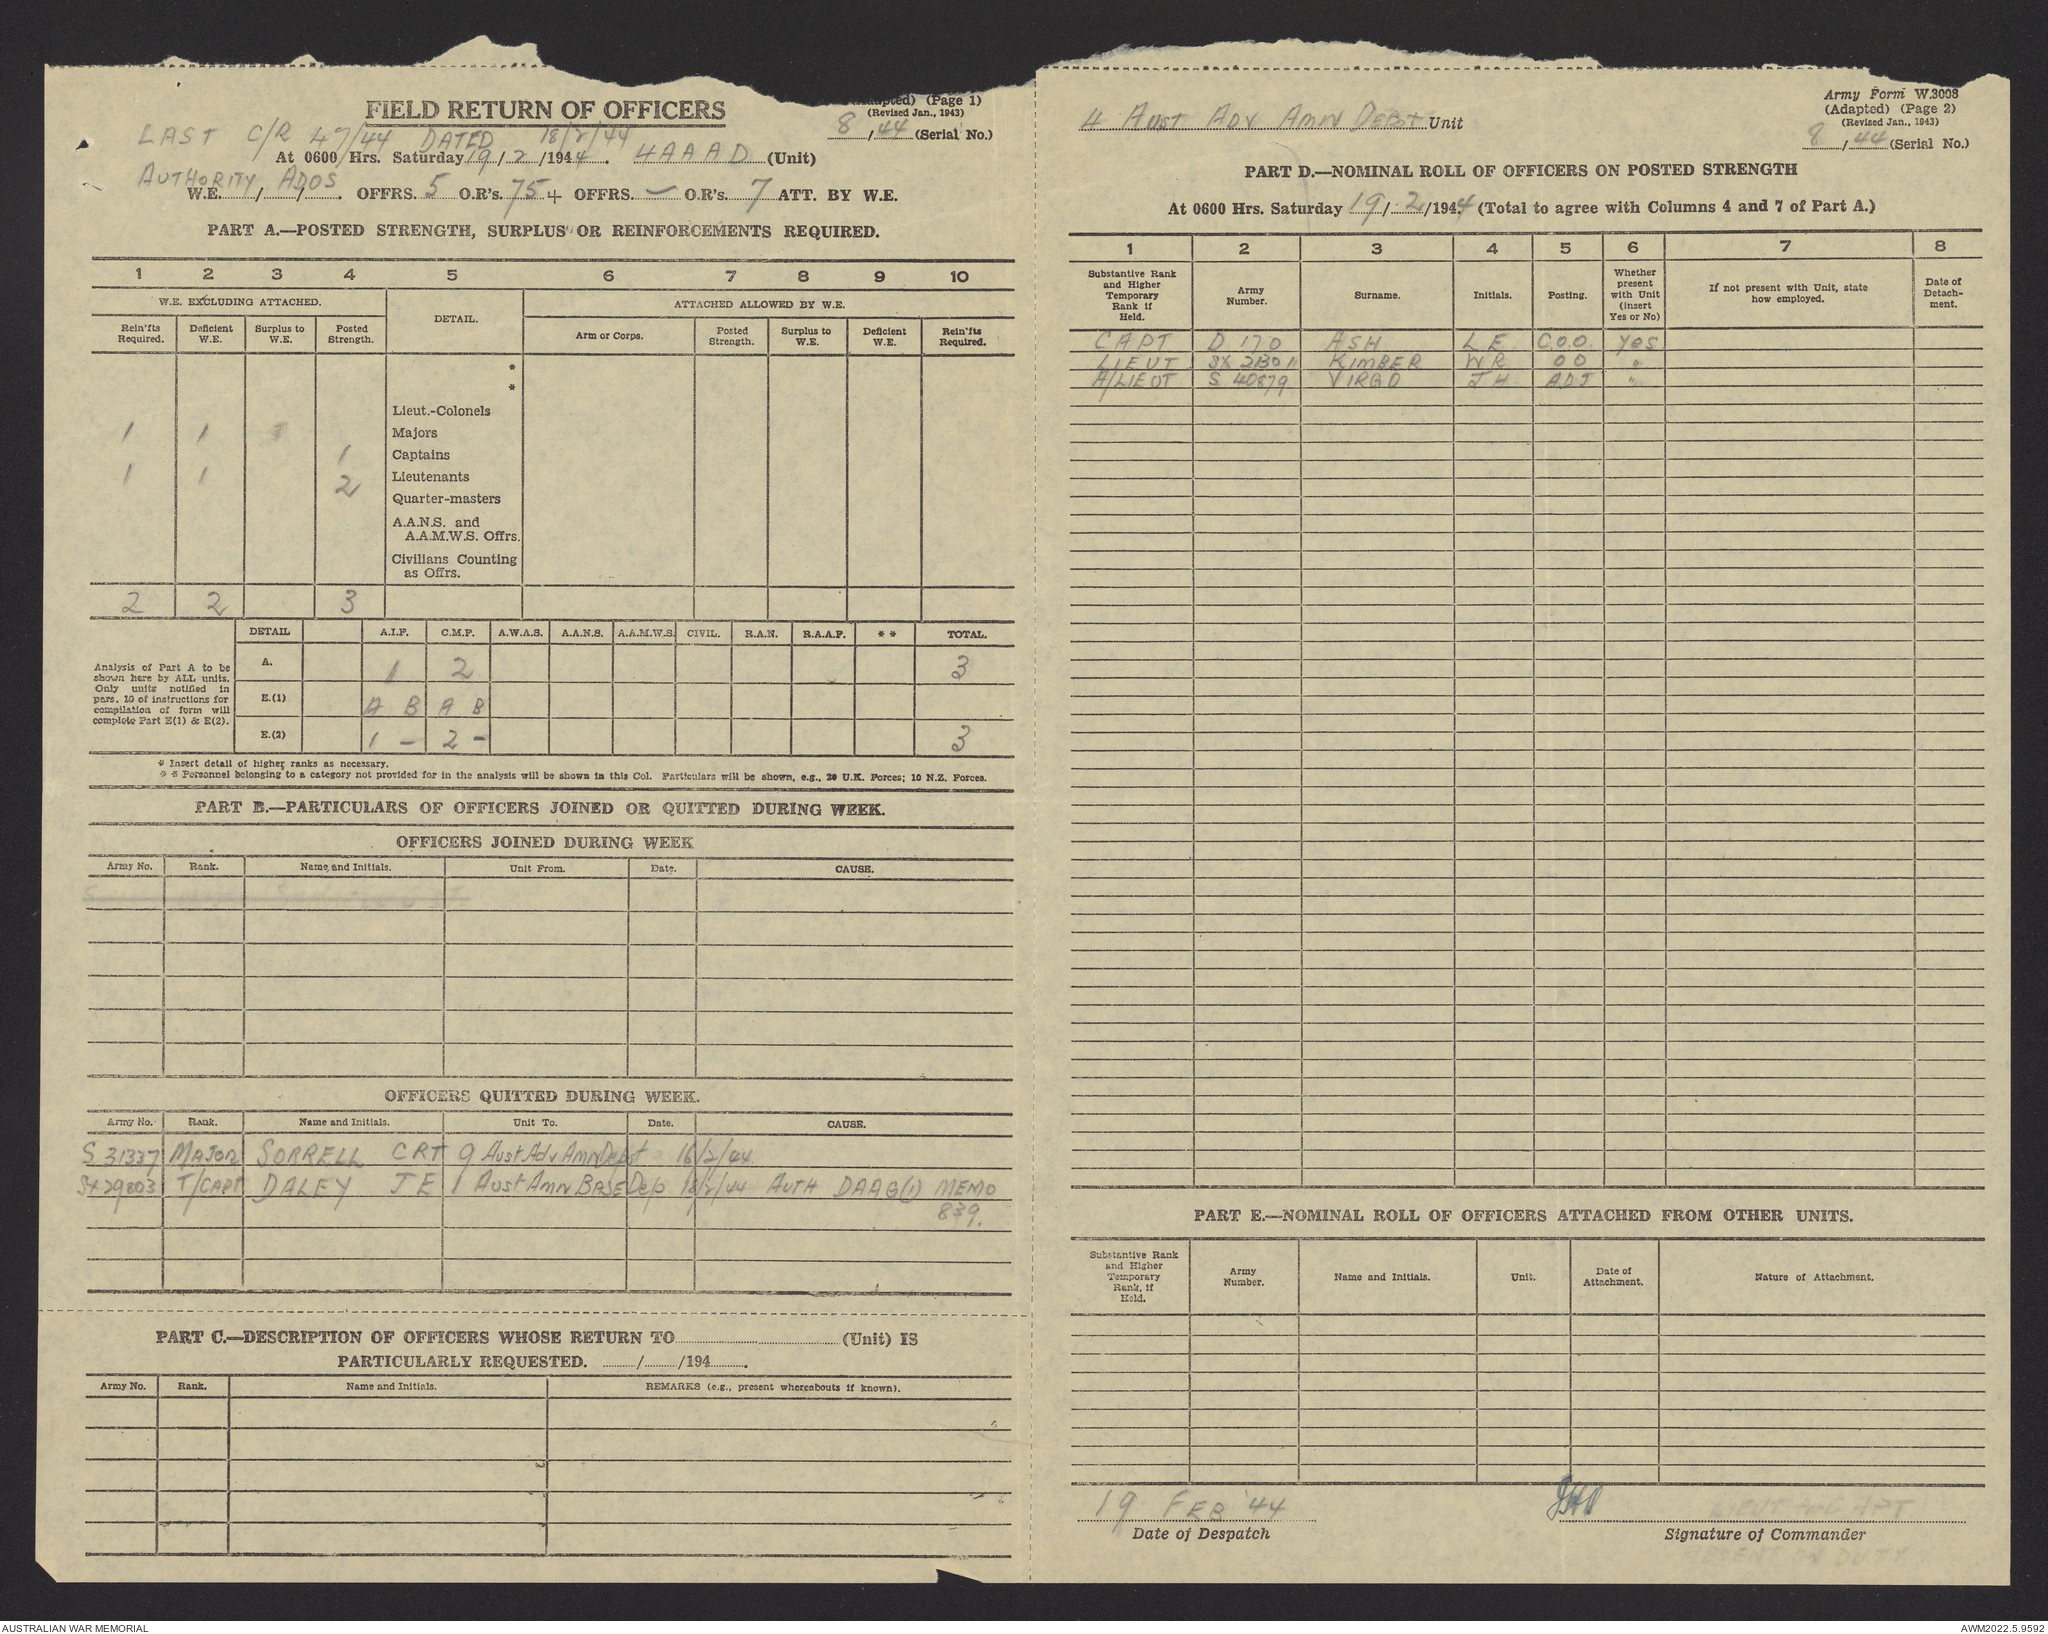 FIELD RETURN OF OFFICERS
(Adapted) (Page 1)
(Revised Jan., 1943)
8 / 44 (Serial No.)
LAST C/R 47/44 DATED 18/2/44
At 0600 Hrs. Saturday 19/2/1944. 4AAAD (Unit)
AUTHORITY ADOS
W.E. / / . OFFRS. 5 O.R's. 75 + OFFRS. — O.R's. 7 ATT. BY W.E.
PART A.—POSTED STRENGTH, SURPLUS OR REINFORCEMENTS REQUIRED.
1 2 3 4 5 6 7 8 9 10
W.E. EXCLUDING ATTACHED. DETAIL. ATTACHED ALLOWED BY W.E.
Rein'fts Required. Deficient W.E. Surplus to W.E. Posted Strength. Arm or Corps. Posted Strength. Surplus to W.E. Deficient W.E. Rein'fts Required.
*
*
Lieut.-Colonels
1 1 Majors
1 Captains
1 1 2 Lieutenants
Quarter-masters
A.A.N.S. and
A.A.M.W.S. Offrs.
Civilians Counting
as Offrs.
2 2 3
DETAIL A.I.F. C.M.F. A.W.A.S. A.A.N.S. A.A.M.W.S. CIVIL. R.A.N. R.A.A.F. * * TOTAL.
Analysis of Part A to be shown here by ALL units. Only units notified in para. 10 of instructions for compilation of form will complete Part E(1) & E(2).
A. 1 2 3
E.(1) A B A B
E.(2) 1 – 2 – 3
* Insert detail of higher ranks as necessary.
* * Personnel belonging to a category not provided for in the analysis will be shown in this Col. Particulars will be shown, e.g., 20 U.K. Forces; 10 N.Z. Forces.
PART B.—PARTICULARS OF OFFICERS JOINED OR QUITTED DURING WEEK.
OFFICERS JOINED DURING WEEK
Army No. Rank. Name and Initials. Unit From. Date. CAUSE.
OFFICERS QUITTED DURING WEEK.
Army No. Rank. Name and Initials. Unit To. Date. CAUSE.
S 31337 MAJOR SORRELL CRT 9 Aust Adv Amn Depot 16/2/44
SX 29803 T/CAPT DALEY JE 1 Aust Amn BASE Dep 18/2/44 AUTH DAAG(1) MEMO
839.
PART C.—DESCRIPTION OF OFFICERS WHOSE RETURN TO (Unit) IS
PARTICULARLY REQUESTED. / /194 .
Army No. Rank. Name and Initials. REMARKS (e.g., present whereabouts if known).
4 Aust Adv Amn Depot Unit
Army Form W.3008
(Adapted) (Page 2)
(Revised Jan., 1943)
8 / 44 (Serial No.)
PART D.—NOMINAL ROLL OF OFFICERS ON POSTED STRENGTH
At 0600 Hrs. Saturday 19/2/1944 (Total to agree with Columns 4 and 7 of Part A.)
1 2 3 4 5 6 7 8
Substantive Rank and Higher Temporary Rank if Held. Army Number. Surname. Initials. Posting. Whether present with Unit (insert Yes or No) If not present with Unit, state how employed. Date of Detach- ment.
CAPT D 170 ASH L E C.O.O. YES
LIEUT SX 21301 KIMBER WR OO "
A/LIEUT S 40879 VIRGO J H ADJ "
PART E.—NOMINAL ROLL OF OFFICERS ATTACHED FROM OTHER UNITS.
Substantive Rank and Higher Temporary Rank, if Held. Army Number. Name and Initials. Unit. Date of Attachment. Nature of Attachment.
19 FEB '44
Date of Despatch
Signature of Commander
ABSENT ON DUTY
AUSTRALIAN WAR MEMORIAL
AWM2022.5.9592